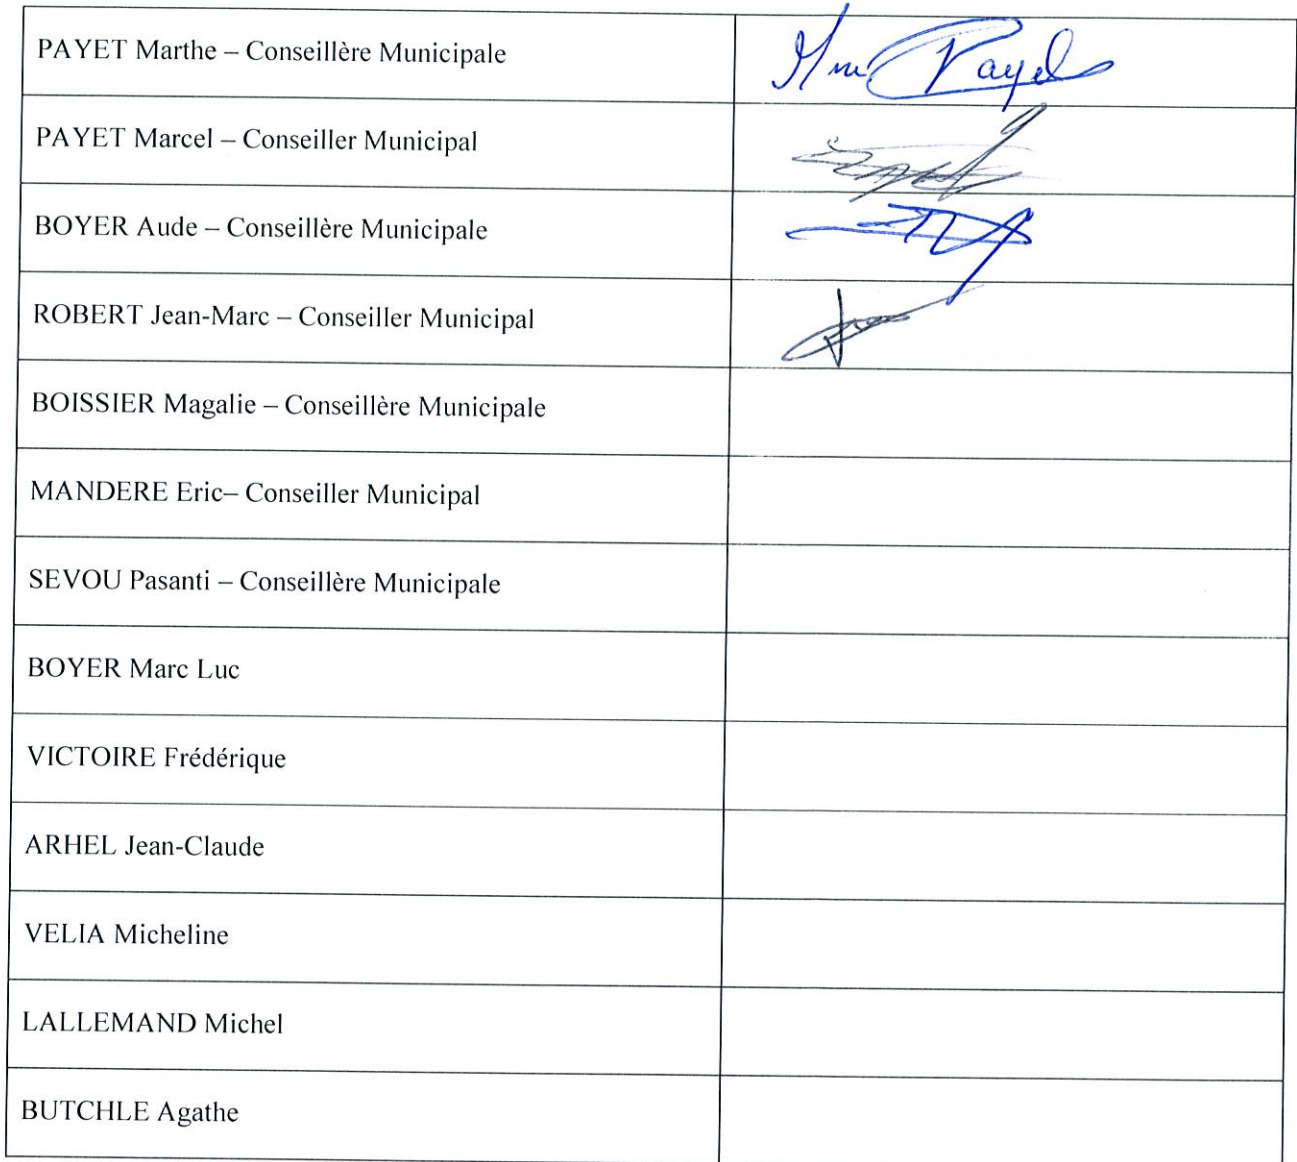 PAYET Marthe – Conseillère Municipale
Mme Payet
PAYET Marcel – Conseiller Municipal
BOYER Aude – Conseillère Municipale
ROBERT Jean-Marc – Conseiller Municipal
BOISSIER Magalie – Conseillère Municipale
MANDERE Eric– Conseiller Municipal
SEVOU Pasanti – Conseillère Municipale
BOYER Marc Luc
VICTOIRE Frédérique
ARHEL Jean-Claude
VELIA Micheline
LALLEMAND Michel
BUTCHLE Agathe